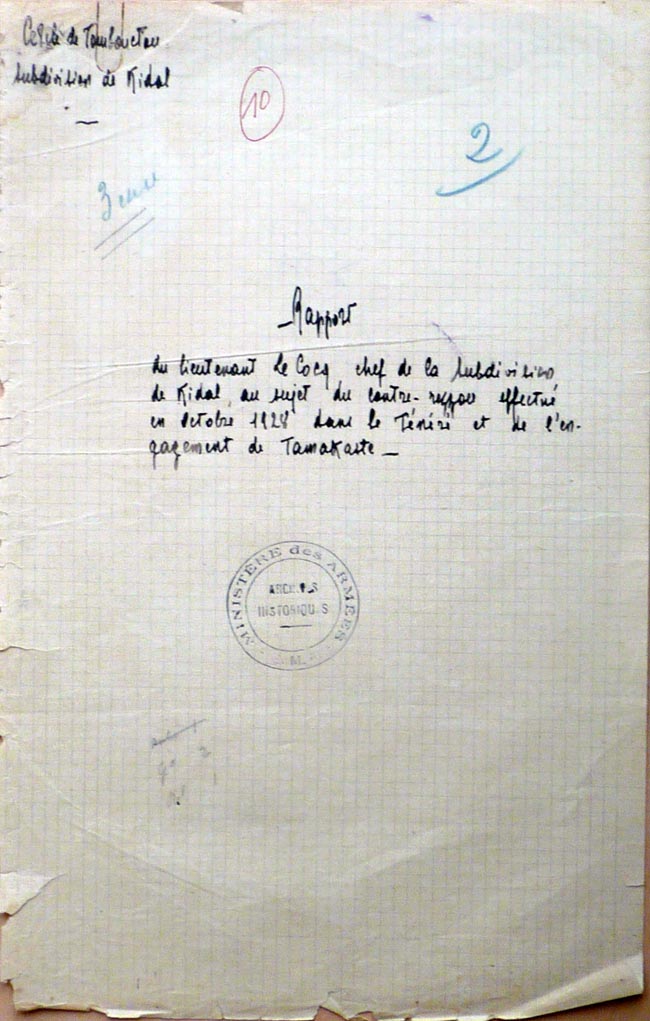 Cercle de Tombouctou
Subdivision de Kidal
10
2
Rapport
du lieutenant Le Cocq chef de la Subdivision
de Kidal, au sujet du contre-rezzou effectué
en Octobre 1928 dans le Ténéré et de l'en-
gagement de Tamakaste
MINISTÈRE des ARMÉES
HISTORIQU S